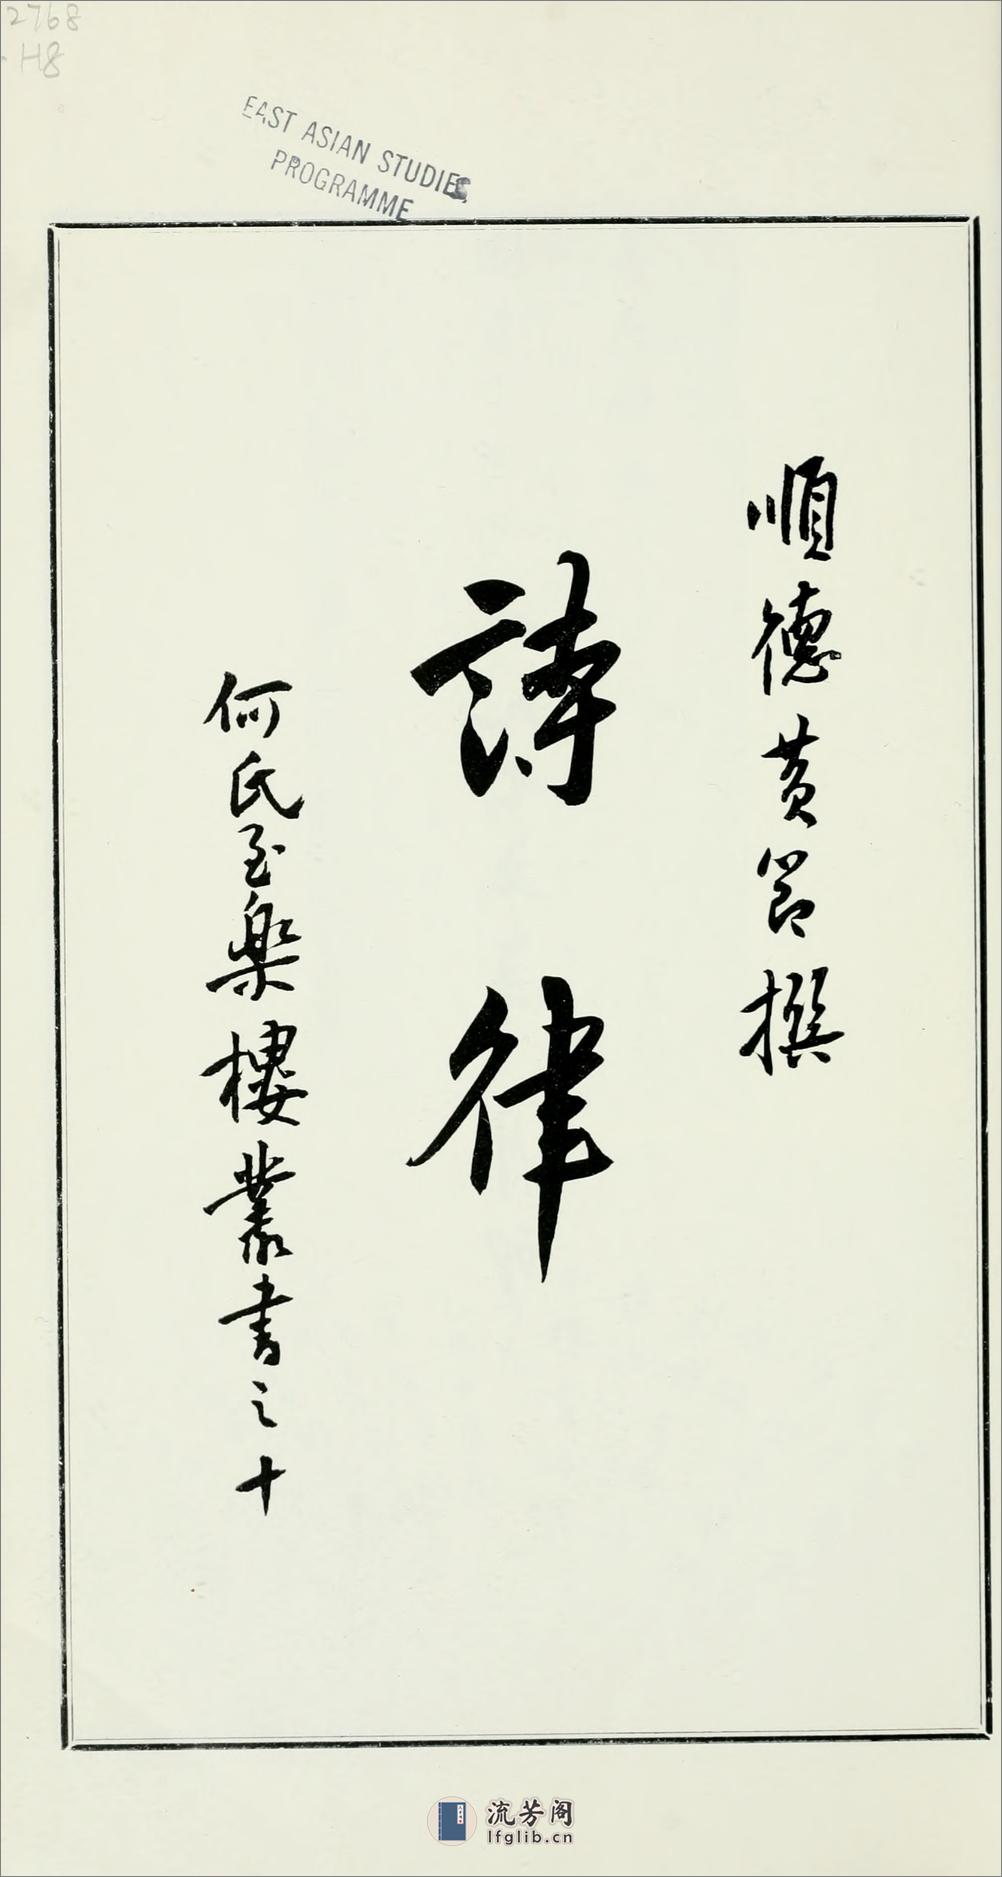 2768
.H8
EAST ASIAN STUDIES
PROGRAMME
順德黃節撰
詩律
何氏至樂樓叢書之十
流芳阁
lfglib.cn